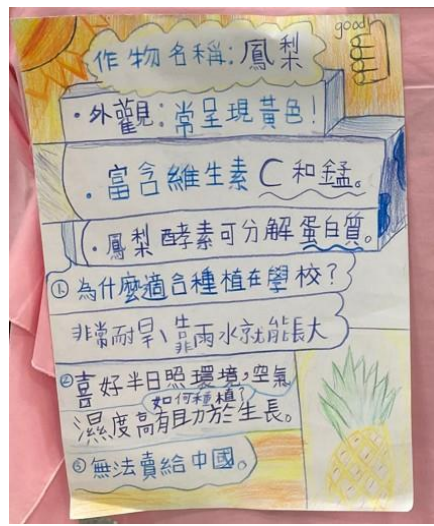 good
作物名稱:鳳梨
·外觀:常呈現黃色!
·富含維生素C和錳。
·鳳梨酵素可分解蛋白質。
①為什麼適合種植在學校?
非常耐旱、靠雨水就能長大
②喜好半日照環境,空氣
如何種植?
濕度高有助於生長。
③無法賣給中國。